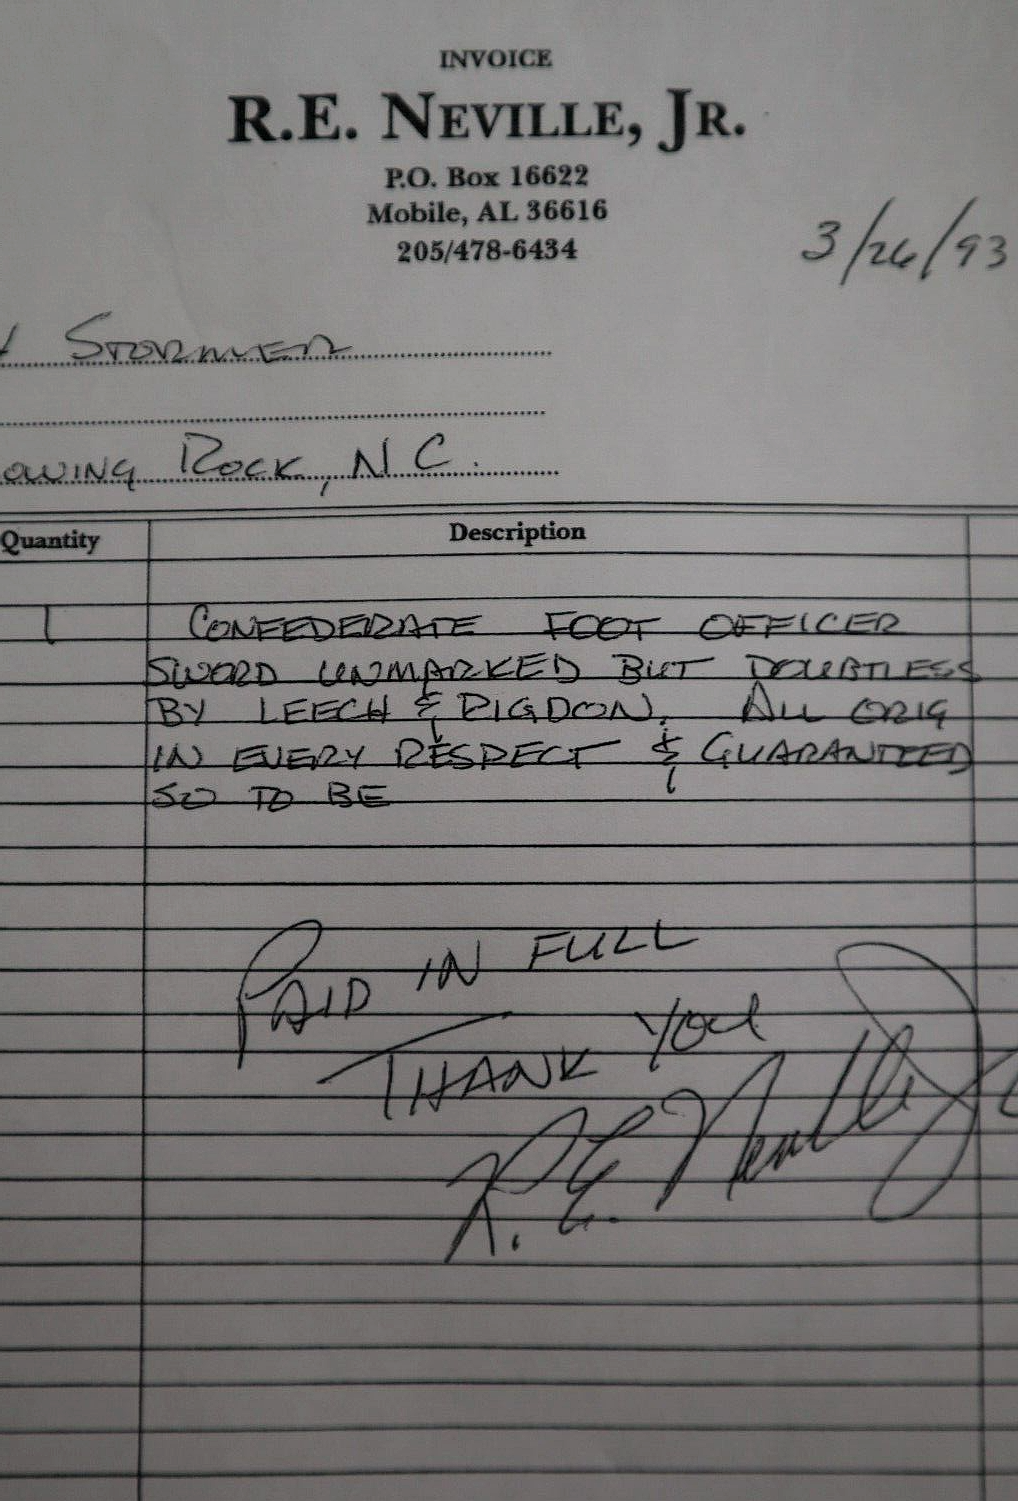 INVOICE
R.E. NEVILLE, JR.
P.O. Box 16622
Mobile, AL 36616
205/478-6434
3/26/93
STORMER
OWING ROCK, N.C.
Quantity Description
1 CONFEDERATE FOOT OFFICER
SWORD UNMARKED BUT DOUBTLESS
BY LEECH & RIGDON. ALL ORIG
IN EVERY RESPECT & GUARANTEED
SO TO BE
PAID IN FULL
THANK YOU
R. E. Neville Jr